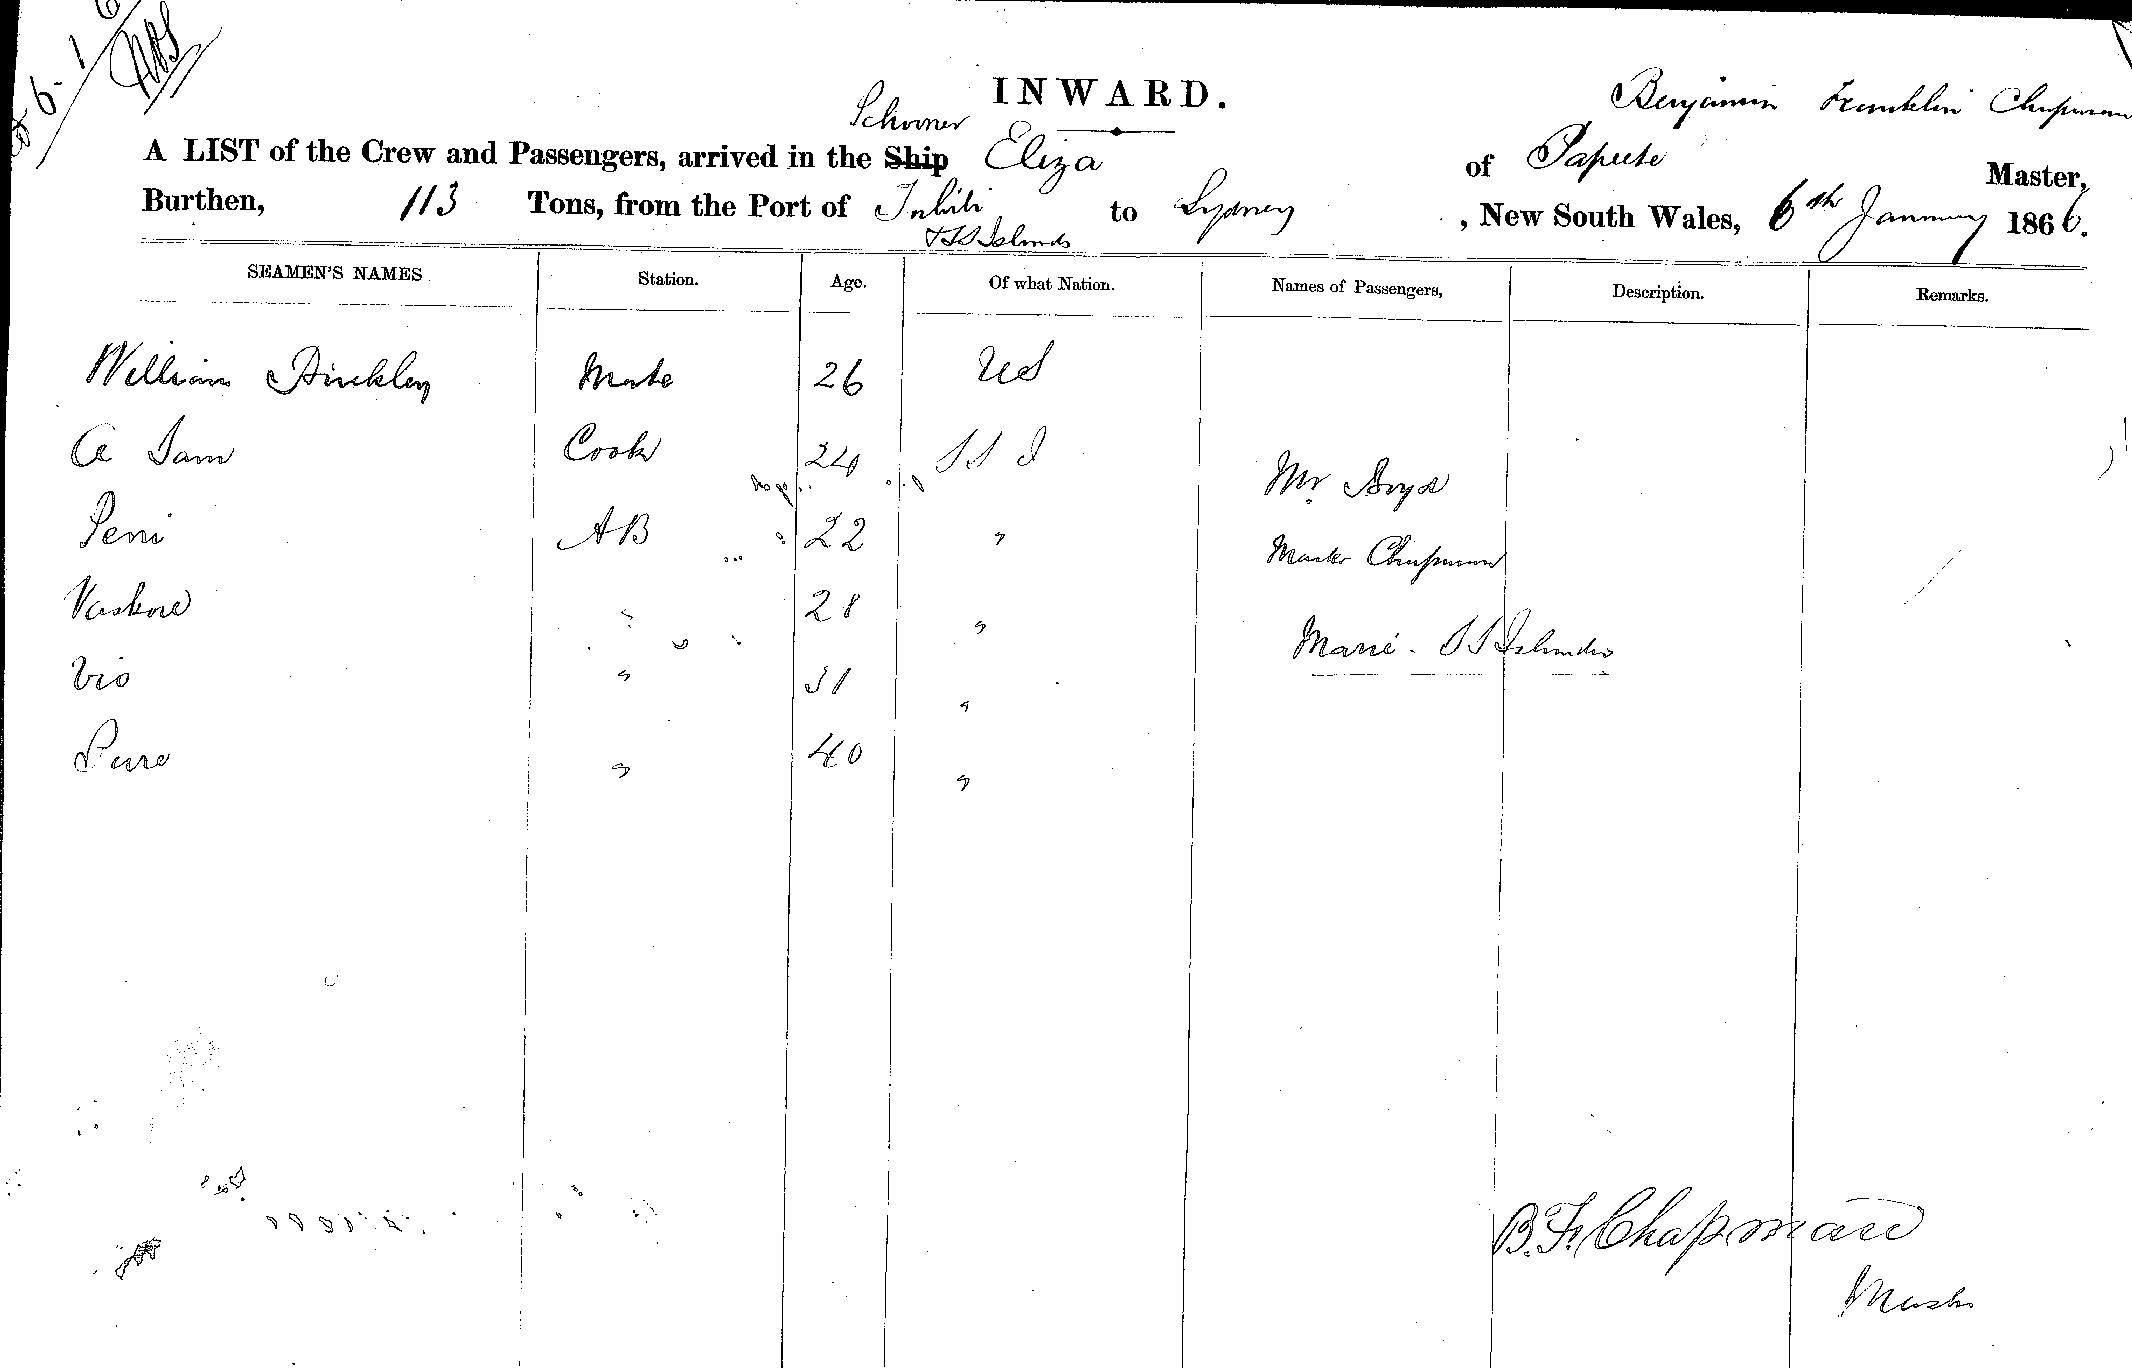 INWARD.
Benjamin Franklin Chapman
Schooner
A LIST of the Crew and Passengers, arrived in the Ship Eliza of Papeete Master,
Burthen, 113 Tons, from the Port of Tahiti to Sydney , New South Wales, 6th January 1866.
Islands
SEAMEN'S NAMES Station. Age. Of what Nation. Names of Passengers, Description. Remarks.
William Binckley Mate 26 US
A Sam Cook 24 S S I Mr Boyd
Peni AB 22 " Master Chapman
28 " Marié - S S Islander
Vio " 31 "
" 40 "
B. F. Chapman
Master